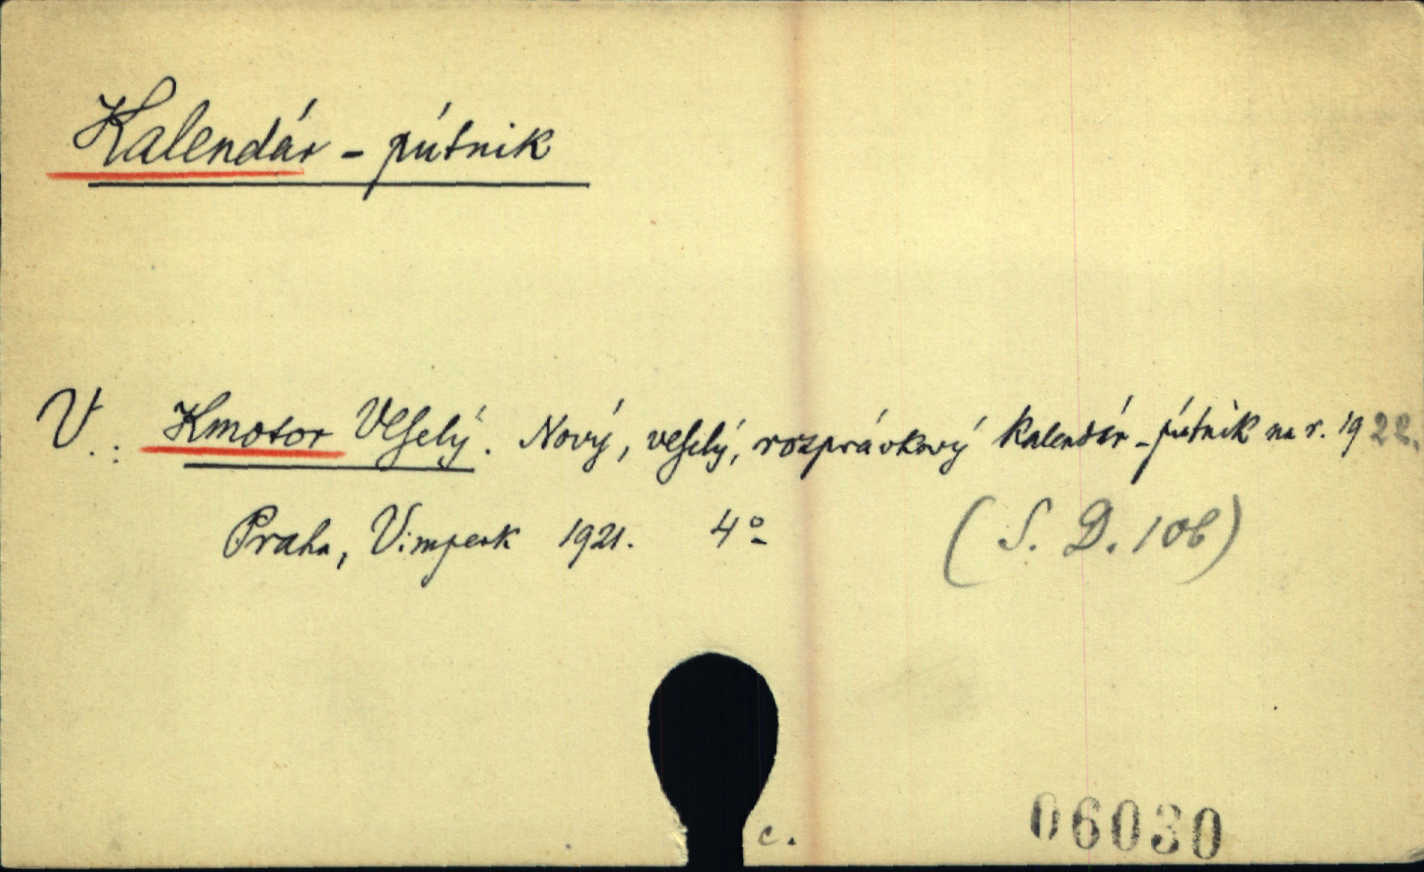 Kalendár - pútnik
V.: Kmotor Veselý. Nový, veselý, rozprávkový kalendár - pútnik na r. 1922.
Praha, Vimperk 1921. 4° (S. D. 106)
c. 06030